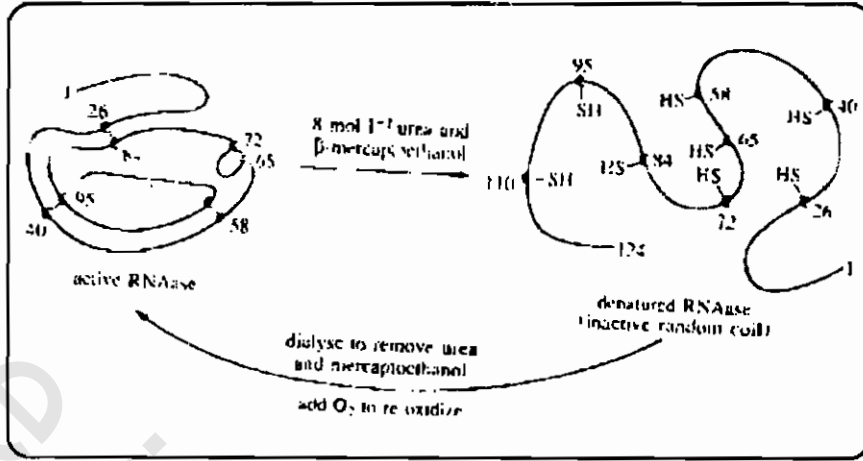 1
26
72
65
95
40
58
active RNAase
8 mol l⁻¹ urea and
β-mercaptoethanol
95
SH
HS
58
HS
40
HS
65
HS
84
HS
HS
110
-SH
72
26
124
1
denatured RNAase
(inactive random coil)
dialyse to remove urea
and mercaptoethanol
add O₂ to re oxidize